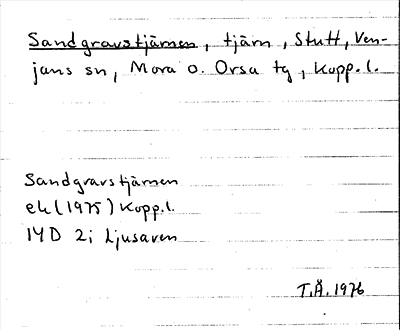 Sandgravstjärnen, tjärn, Stutt, Ven-
jans sn, Mora o. Orsa tg, Kopp. l.
Sandgravstjärnen
ek (1975) Kopp. l.
14D 2i Ljusaren
T.Å. 1976